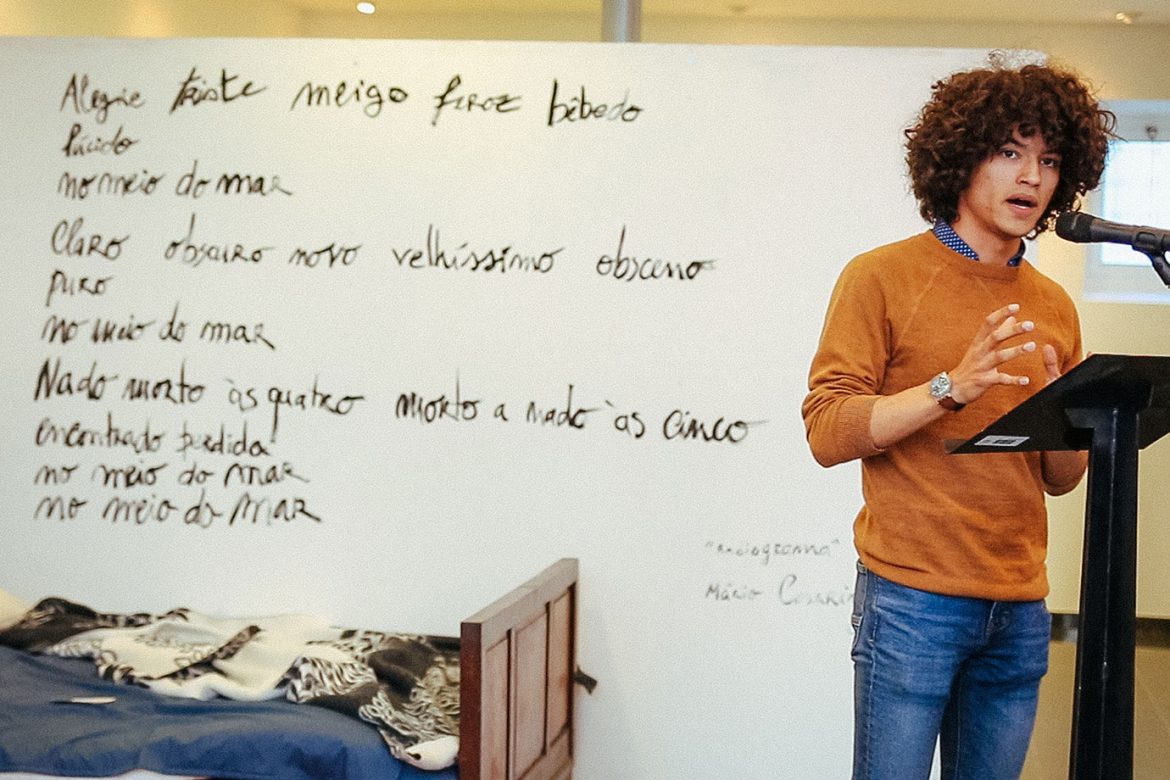 Alegre triste meigo feroz bêbedo
lúcido
no meio do mar
Claro obscuro novo velhíssimo obsceno
puro
no meio do mar
Nado morto às quatro morto a nado às cinco
encontrado perdida
no meio do mar
no meio do mar
"radiograma"
Mário